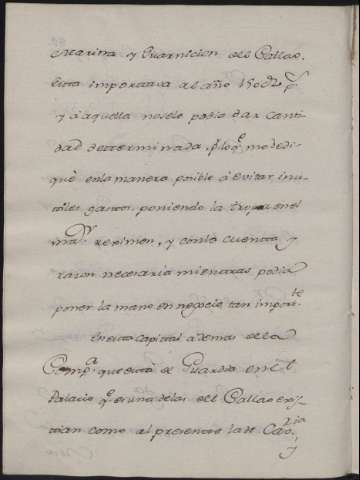 Marina y Guarnicion del Callao.
Esta importava al año 150 82 p
y á aquella no sele podia dar canti
dad determinada, p.r lo q.e me dedi-
què enla manera posible à evitar inu-
tiles gastos, poniendo la tropa en el
ma.or regimen, y conla cuenta y
razon necesaria mientras podia
poner la mano en negocio tan import.te
En esta capital ademas dela
Comp.a que està de Guardia en el
Palacio q.e es una delas del Callao exis-
tian como al presente la de Cav.ria
y